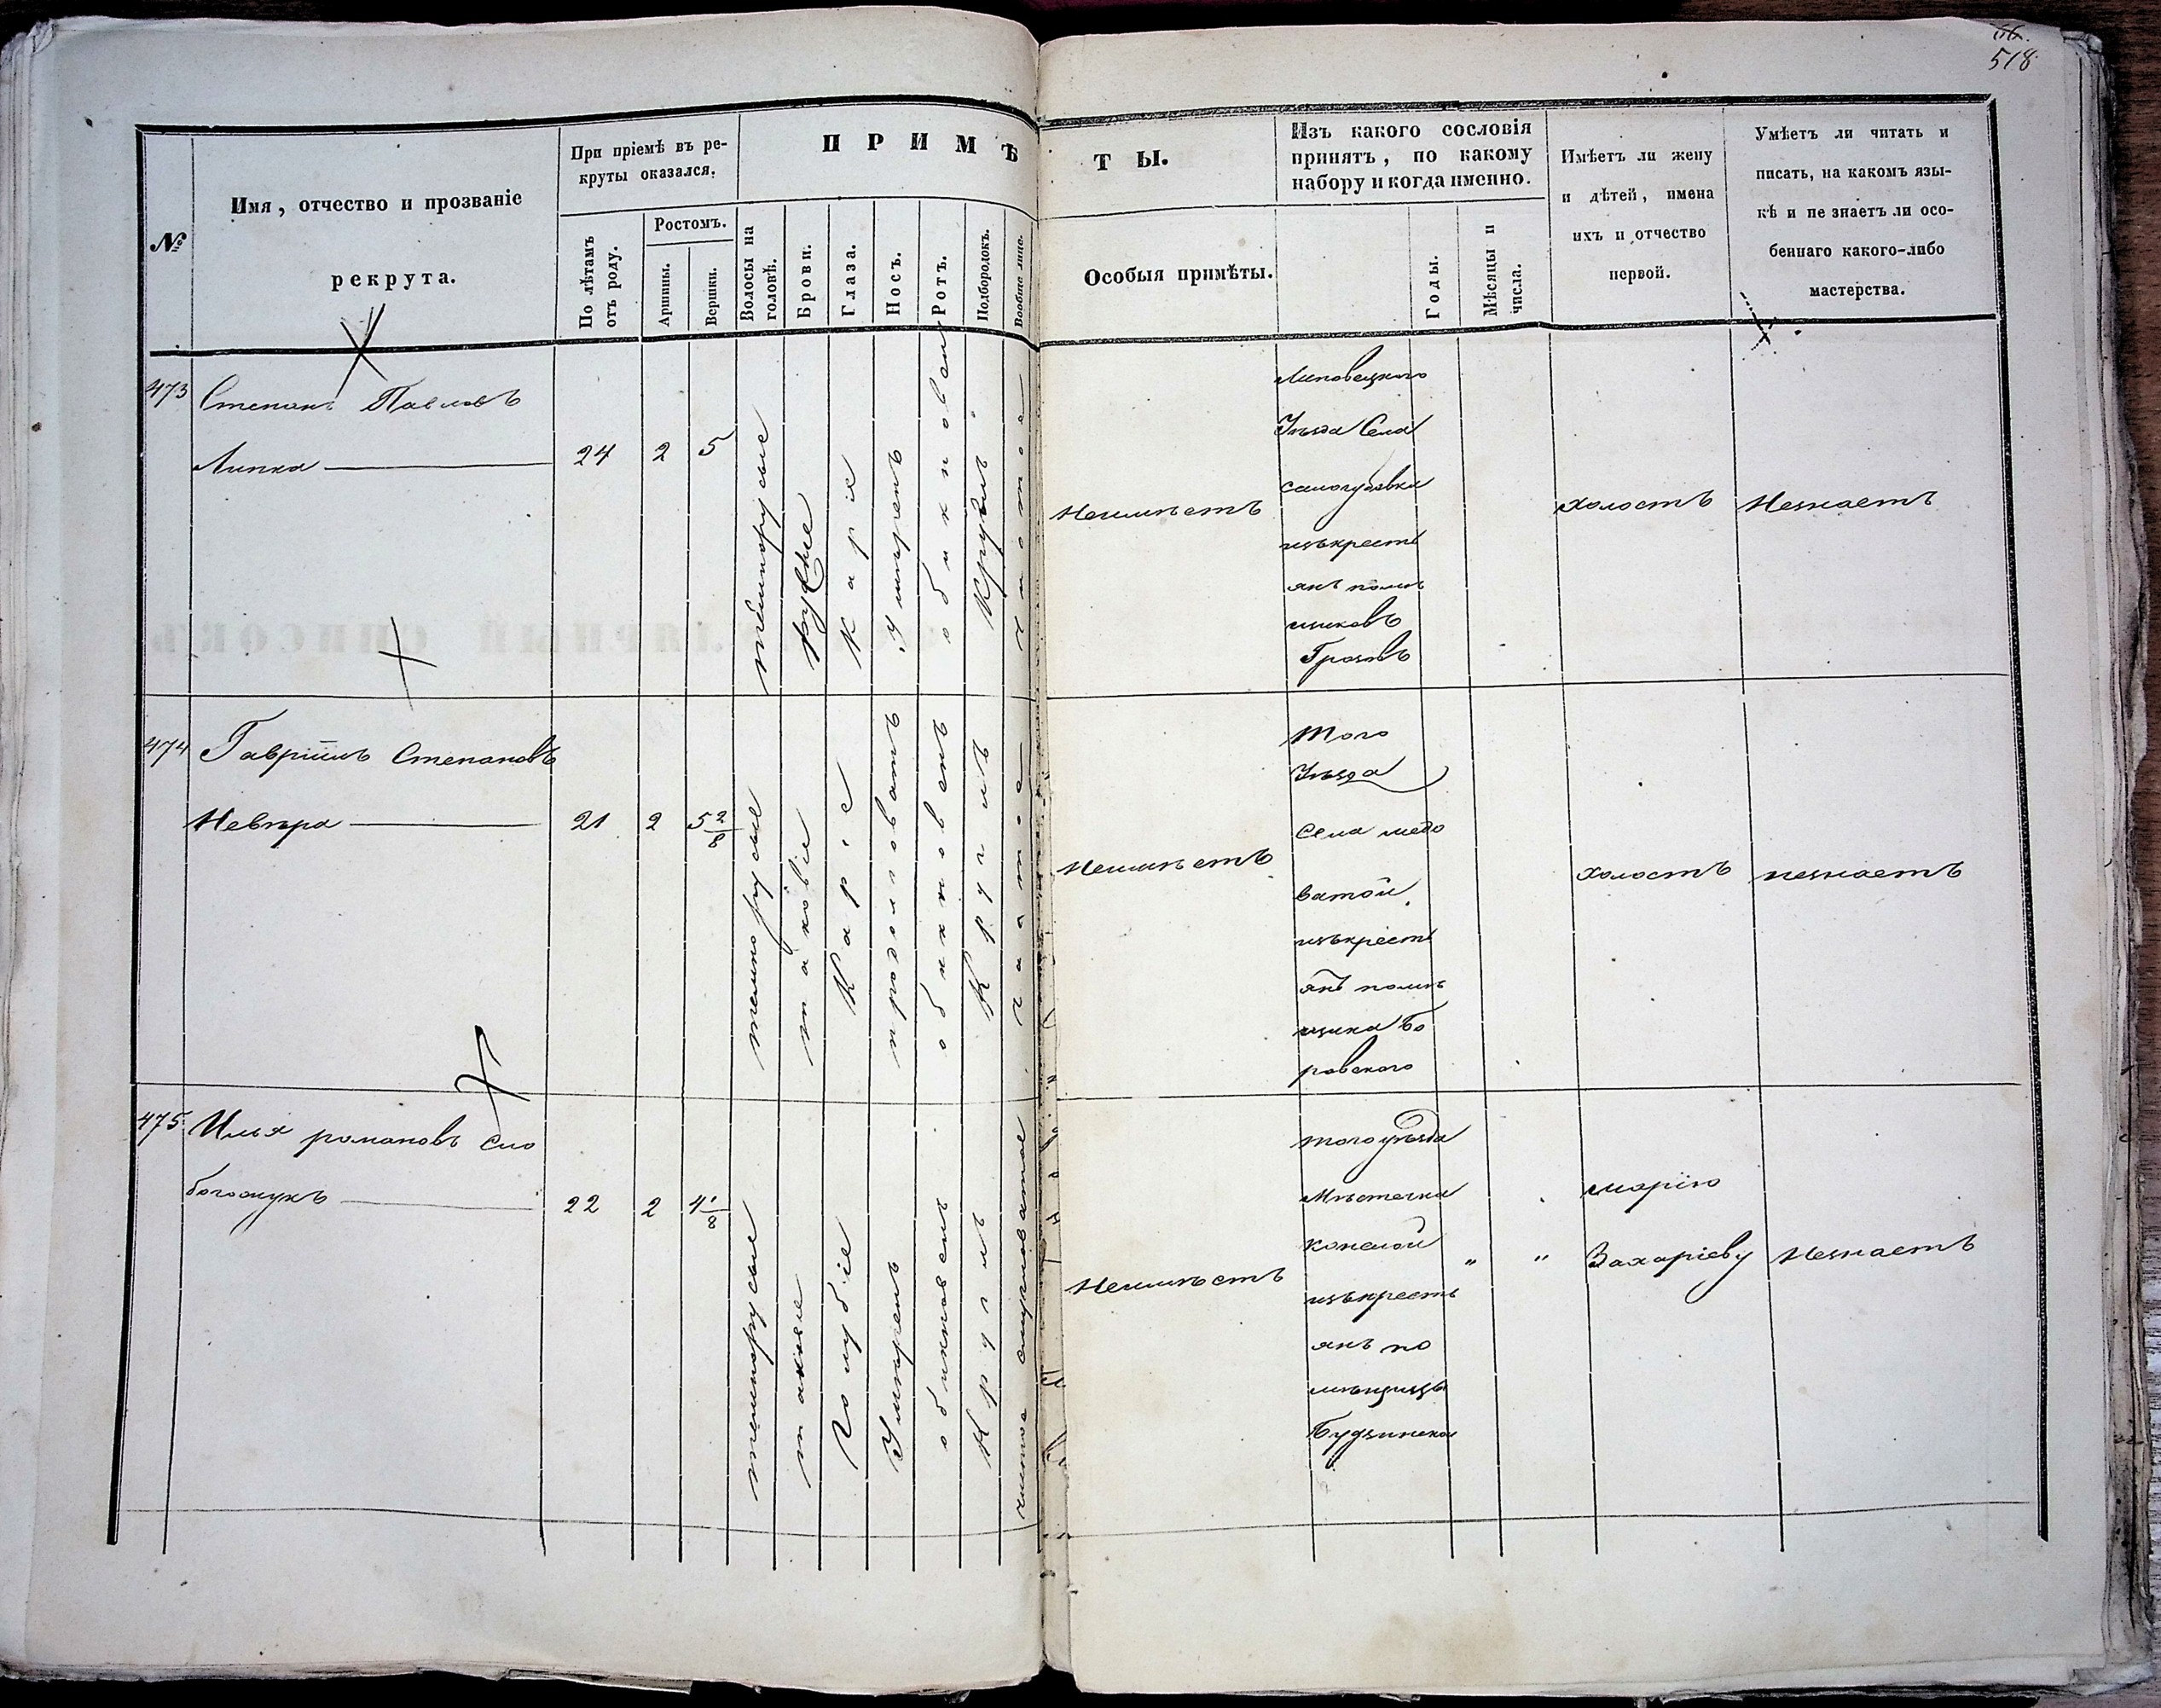 518
ПРИМѢ
ТЫ.
№
Имя, отчество и прозваніе
рекрута.
При пріемѣ въ ре-
круты оказался.
По лѣтамъ
отъ роду.
Ростомъ.
Аршины.
Вершки.
Волосы на
головѣ.
Брови.
Глаза.
Носъ.
Ротъ.
Подбородокъ.
Вообще лице.
Особыя примѣты.
Изъ какого сословія
принятъ, по какому
набору и когда именно.
Годы.
Мѣсяцы и
числа.
Имѣетъ ли жену
и дѣтей, имена
ихъ и отчество
первой.
Умѣетъ ли читать и
писать, на какомъ язы-
кѣ и не знаетъ ли осо-
беннаго какого-либо
мастерства.
473
Степанъ Павловъ
Липка
24
2
5
темнорусые
русые
каріе
Умѣренъ
обикновен
Круглъ
чистое
Неимѣетъ
Липовецкого
Уѣзда Села
самогубовки
изъкресть
янъ помѣ
щиковъ
холостъ
Незнаетъ
474
Гавріилъ Степановъ
Невѣра
21
2
5 2/8
темнорусые
таковіе
Каріе
продолговатъ
обикновенъ
Круглъ
чистое
Неимѣетъ
Того
Уѣзда
Села медо
ватой
изъкресть
янъ помѣ
щика Бо
ровского
холостъ
незнаетъ
475
Илья романовъ Сло
22
2
4 1/8
темнорусые
такіе
Голубіе
Умѣренъ
обикновенъ
Круглъ
чистое
Неимѣетъ
того уѣзда
Мѣстечка
конелои
изъкресть
янъ по
мѣщицы
"
"
марію
Захаріеву
Незнаетъ